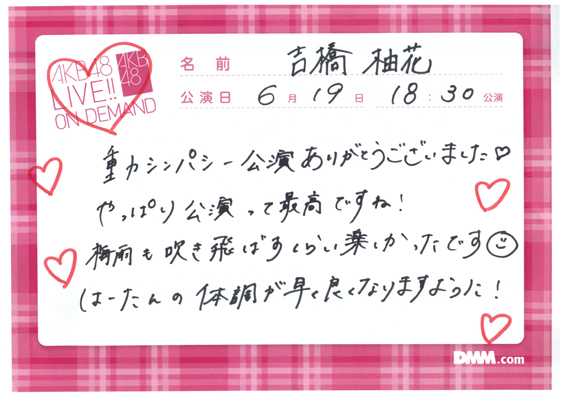 AKB48
LIVE!!
ON DEMAND
AKB
48
名前 吉橋 柚花
公演日 6月19日 18:30公演
重力シンパシー公演ありがとうございました♡
やっぱり公演って最高ですね!
梅雨も吹き飛ばすくらい楽しかったです☺
はーたんの体調が早く良くなりますように!
DMM.com